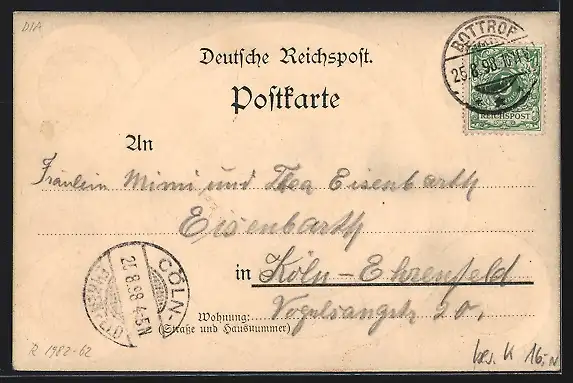 D1A
Deutsche Reichspost.
Postkarte
BOTTROP
26.8.98
REICHSPOST
An
Fräulein Mimi und Thea Eisenbarth
Eisenbarth
in Köln-Ehrenfeld
Wohnung: Vogelsangstr 20,
(Straße und Hausnummer)
CÖLN-EHRENFELD
26.8.98 4-5N
R 1982-62
bes. K 16,-